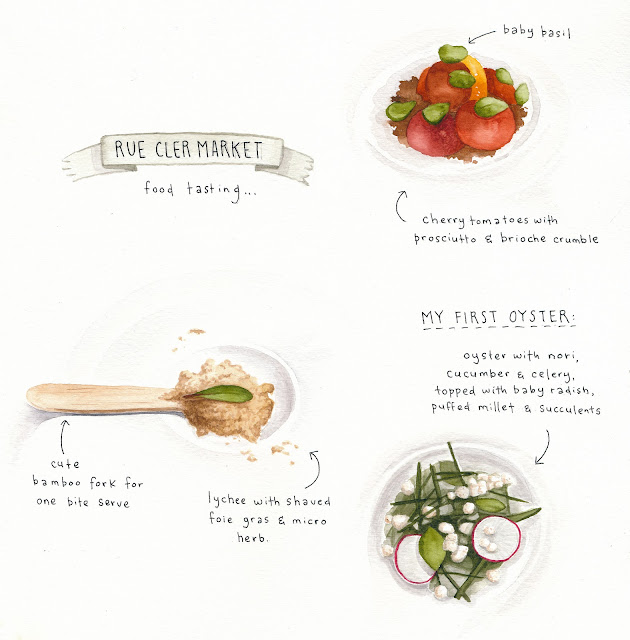 RUE CLER MARKET
food tasting...
baby basil
cherry tomatoes with
prosciutto & brioche crumble
MY FIRST OYSTER:
oyster with nori,
cucumber & celery,
topped with baby radish,
puffed millet & succulents
cute
bamboo fork for
one bite serve
lychee with shaved
foie gras & micro
herb.